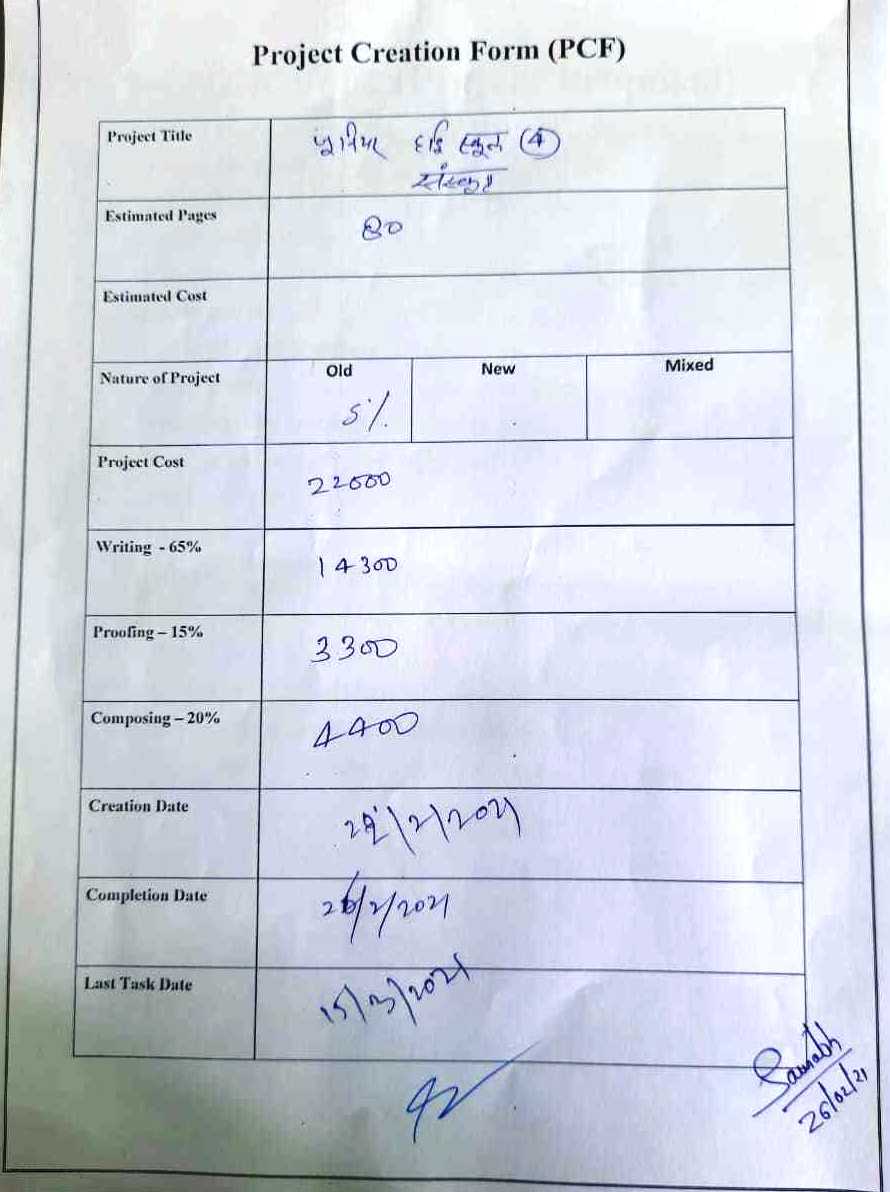 Project Creation Form (PCF)
Project Title जूनियर हाई स्कूल (4)
संस्कृत
Estimated Pages 80
Estimated Cost
Nature of Project Old New Mixed
5%
Project Cost 22000
Writing - 65% 14300
Proofing – 15% 3300
Composing – 20% 4400
Creation Date /2/2021
Completion Date 26/2/2021
Last Task Date 15/3/2021
Saurabh
26/02/21